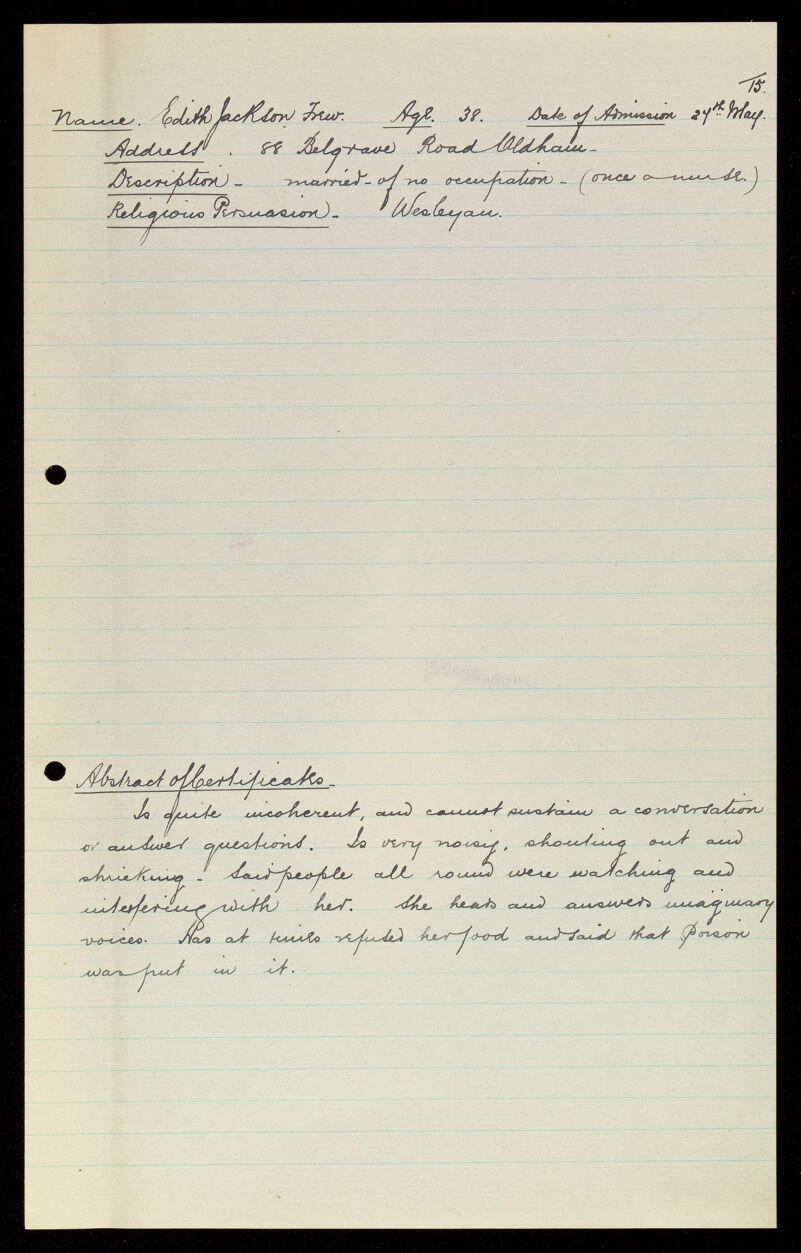 15.
Name. Edith Jackson Frew. Age. 38. Date of Admission 27th May.
Address. 88 Belgrave Road Oldham-
Description- married- of no occupation- (once a nurse.)
Religious Persuasion- Wesleyan.
Abstract of Certificates-
Is quite incoherent, and cannot sustain a conversation
or answer questions. Is very noisy, shouting out and
shrieking- Said people all round were watching and
interfering with her. She hears and answers imaginary
voices. Has at times refused her food and said that poison
was put in it.